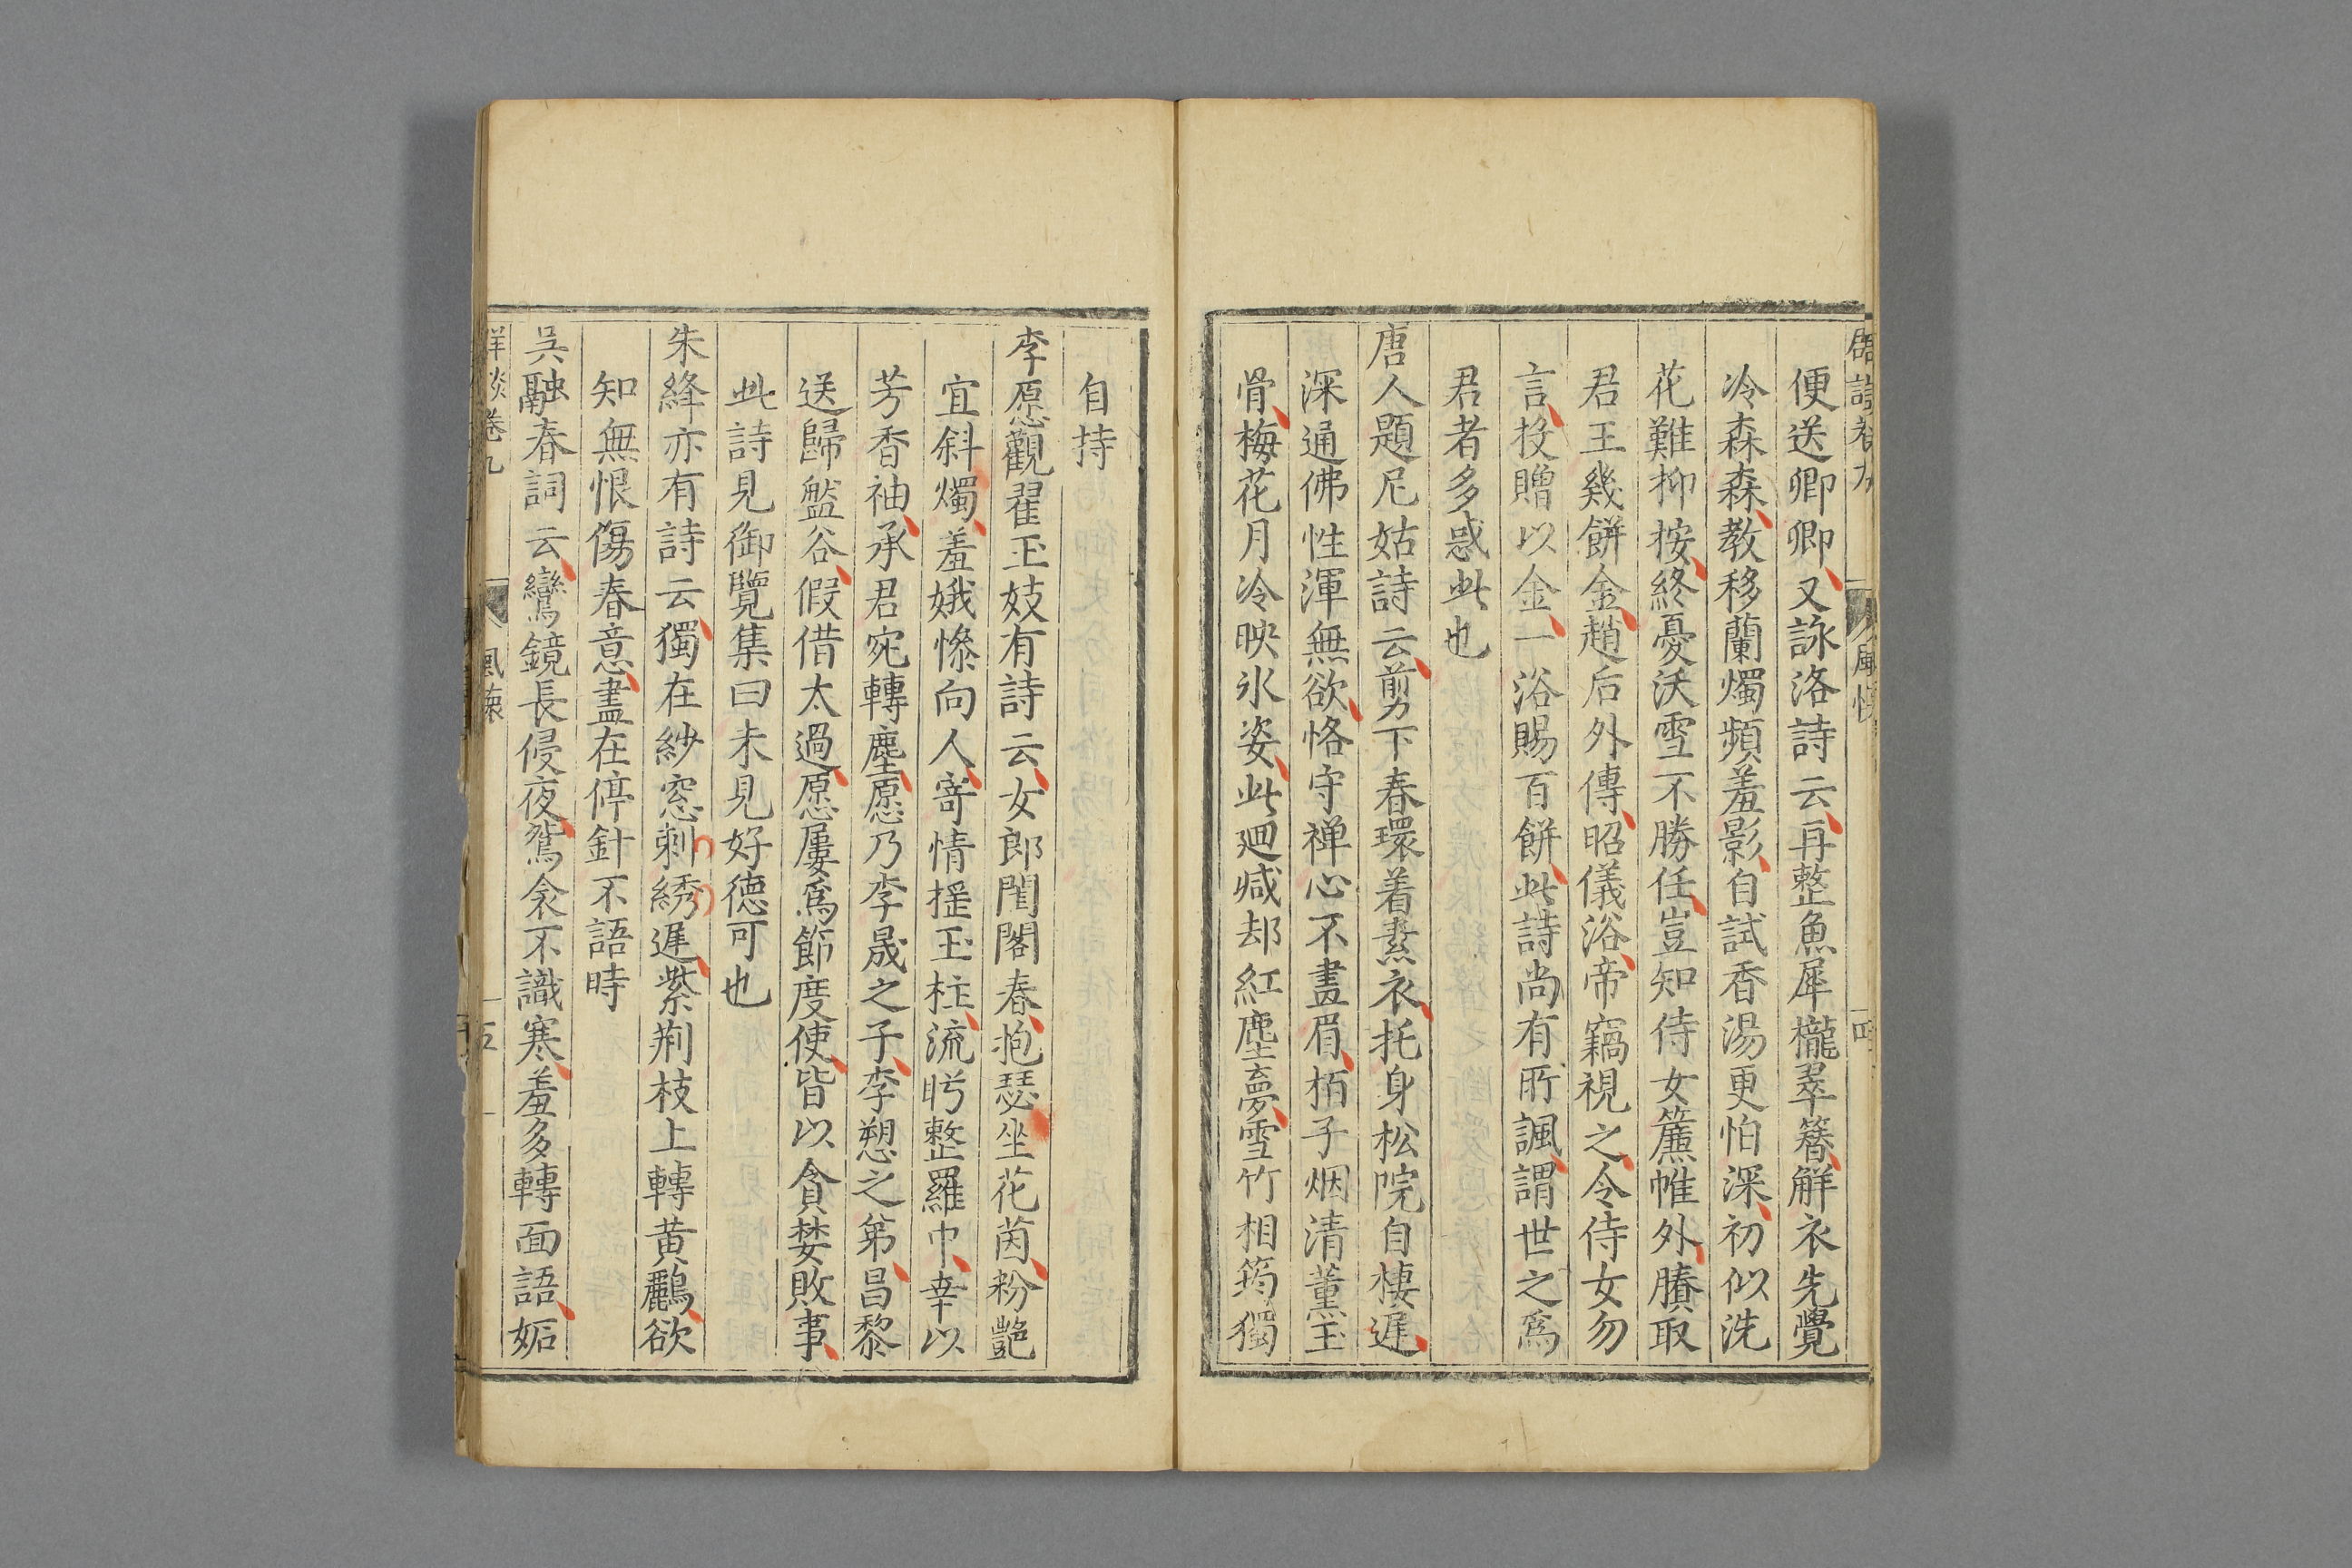 便送卿卿又詠洛詩云再整魚犀櫳翠簪觧衣先覺
冷森森教移蘭燭頻羞影自試香湯更怕深初似洗
花難抑按終憂沃雪不勝任豈知侍女簾帷外賸取
君王幾餅金趙后外傳昭儀浴帝竊視之令侍女勿
言投贈以金一浴賜百餅此詩尚有所諷謂世之爲
君者多惑此也
唐人題尼姑詩云剪下春環着素衣托身松院自棲遲
深通佛性渾無欲恪守禅心不畫眉栢子烟清薫玉
骨梅花月冷映氷姿此廻减却紅塵夣雪竹相筠獨
自持
李愿觀翟玉妓有詩云女郎閨閣春抱瑟坐花茵粉艶
宜斜燭羞娥慘向人寄情揺玉柱流眄整羅巾幸以
芳香袖承君宛轉塵愿乃李晟之子李愬之弟昌黎
送歸盤谷假借太過愿屢爲節度使皆以貪婪敗事
此詩見御覽集曰未見好德可也
朱絳亦有詩云獨在紗窓刺綉遲紫荆枝上轉黄鸝欲
知無恨傷春意盡在停針不語時
吳融春詞云鸞鏡長侵夜鴛衾不識寒羞多轉面語妬
卷九
五